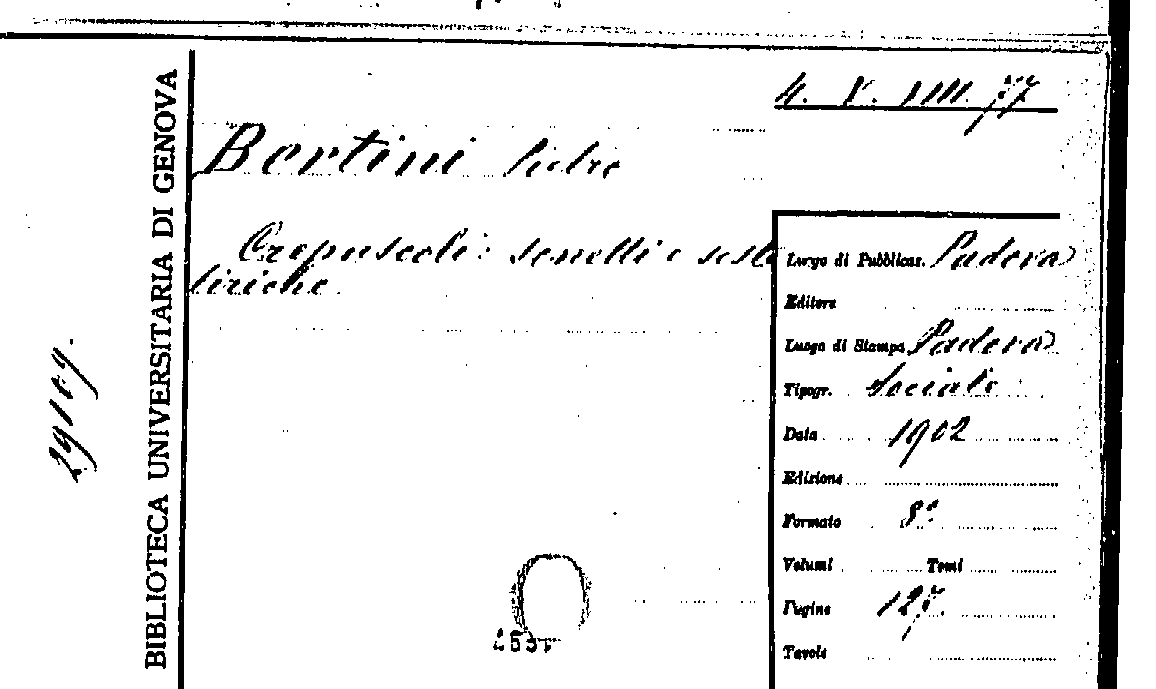 4. V. VIII. 77
Bertini Pietro
Crepuscoli: sonetti e
liriche
BIBLIOTECA UNIVERSITARIA DI GENOVA
29109.
Luogo di Pubblicaz. Padova
Editore
Luogo di Stampa Padova
Tipogr. Sociale
Data 1902
Edizione
Formato 8°
Volumi Tomi
Pagine 127.
Tavole